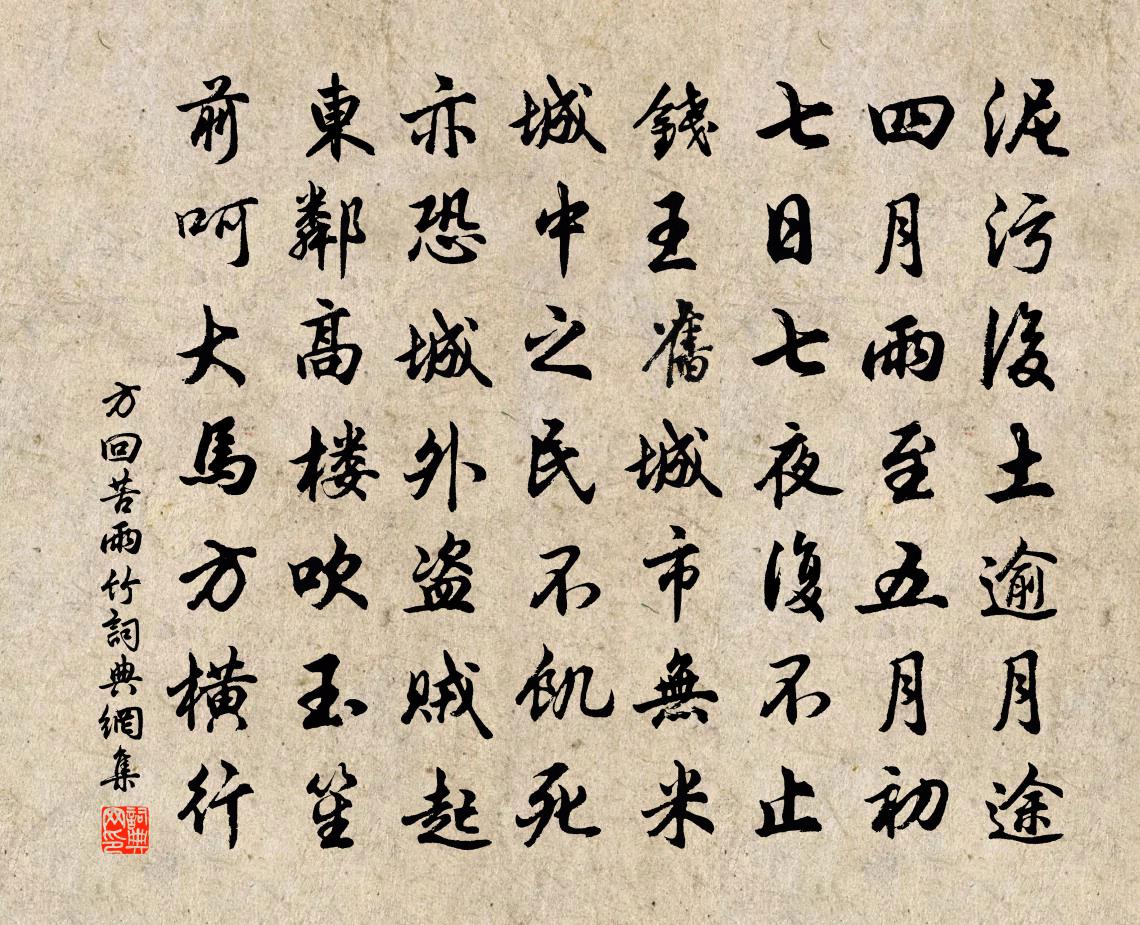 泥污後土逾月途
四月雨至五月初
七日七夜復不止
錢王舊城市無米
城中之民不飢死
亦恐城外盗賊起
東鄰高楼吹玉笙
前呵大馬方橫行
方回苦雨竹詞典網集
詞典網印